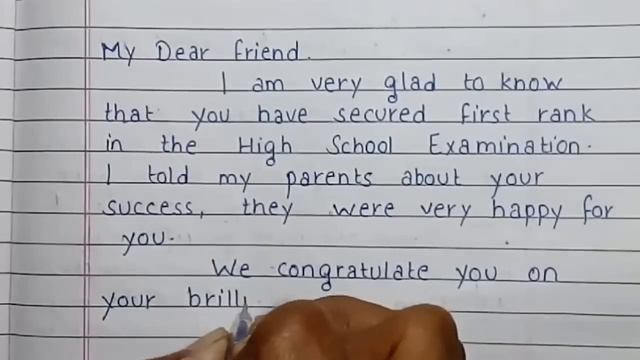 My Dear friend.
I am very glad to know
that you have secured first rank
in the High School Examination.
I told my parents about your
success, they were very happy for
you.
We congratulate you on
your brilli